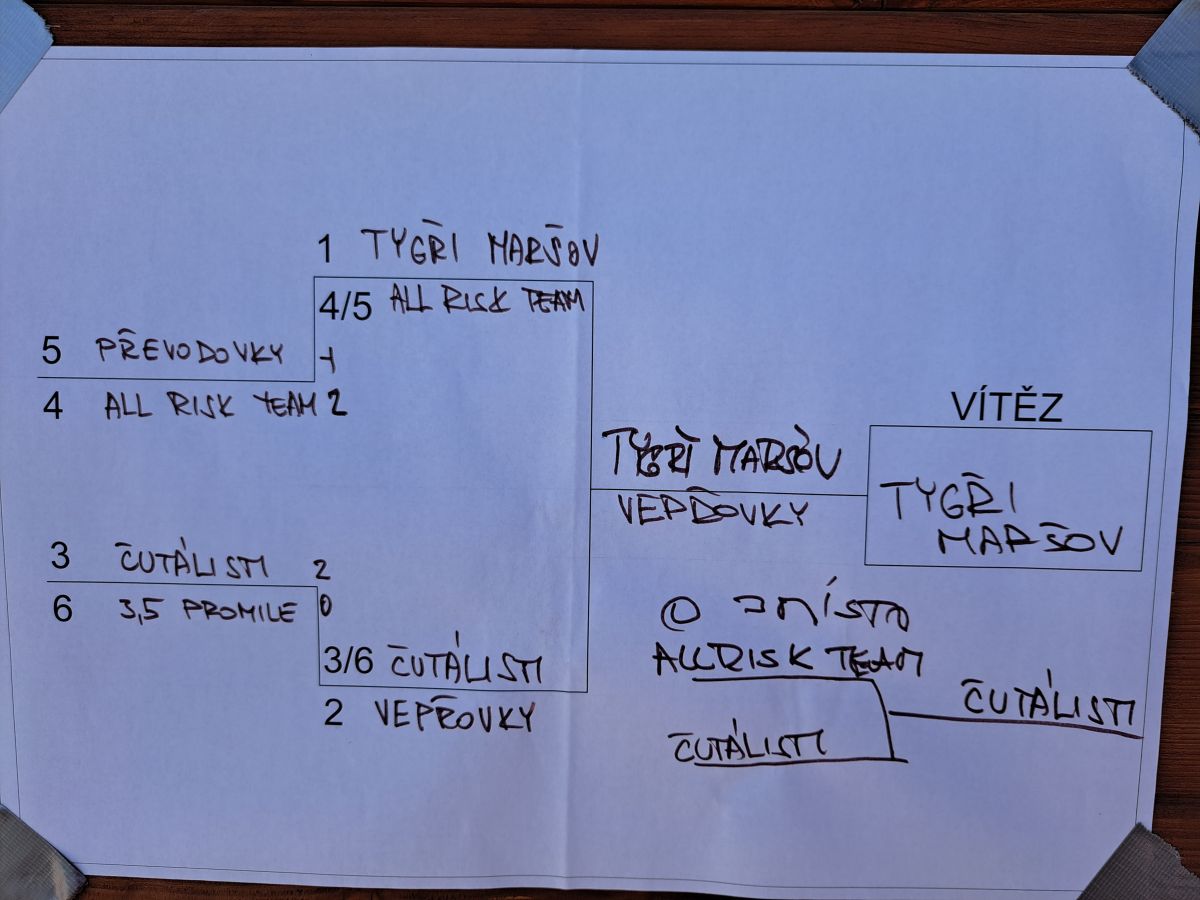 1 TYGŘI MARŠOV
4/5 ALL RISK TEAM
5 PŘEVODOVKY 1
4 ALL RISK TEAM 2
3 ČUTÁLISTI 2
6 3,5 PROMILE 0
3/6 ČUTÁLISTI
2 VEPŘOVKY
TYGŘI MARŠOV
VEPŘOVKY
VÍTĚZ
TYGŘI
MARŠOV
O 3 MÍSTO
ALL RISK TEAM
ČUTÁLISTI
ČUTÁLISTI